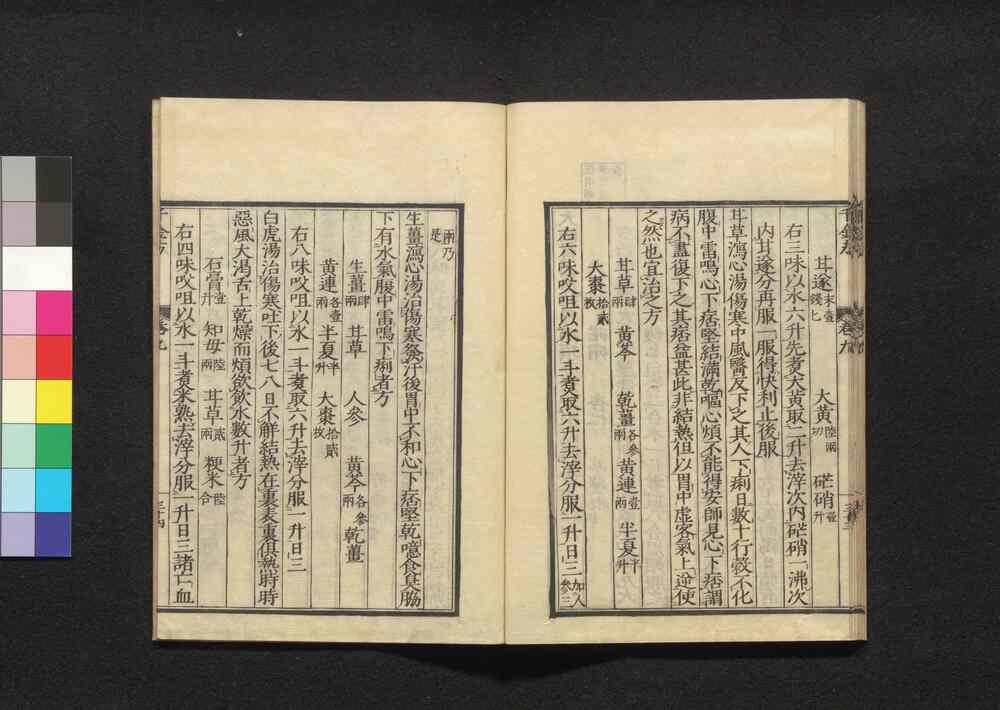 甘遂末壹錢匕 大黃陸兩切 芒硝壹升
右三味以水六升先煑大黃取二升去滓次內芒硝一沸次
內甘遂分再服一服得快利止後服
甘草瀉心湯傷寒中風醫反下之其人下痢日數十行穀不化
腹中雷鳴心下痞堅結滿乾嘔心煩不能得安師見心下痞謂
病不盡復下之其痞益甚此非結熱但以胃中虛客氣上逆使
之然也宜治之方
甘草肆兩 黃芩 乾薑各參兩 黃連壹兩 半夏半升
大棗拾貳枚
右六味㕮咀以水一斗煑取六升去滓分服一升日三加人參三
兩乃是
生薑瀉心湯治傷寒發汗後胃中不和心下痞堅乾噫食臭脇
下有水氣腹中雷鳴下痢者方
生薑肆兩 甘草 人參 黃芩各參兩 乾薑
黃連各壹兩 半夏半升 大棗拾貳枚
右八味㕮咀以水一斗煑取六升去滓分服一升日三
白虎湯治傷寒吐下後七八日不解結熱在裏表裏俱熱時時
惡風大渴舌上乾燥而煩欲飲水數升者方
石膏壹升 知母陸兩 甘草貳兩 粳米陸合
右四味㕮咀以水一斗煑米熟去滓分服一升日三諸亡血